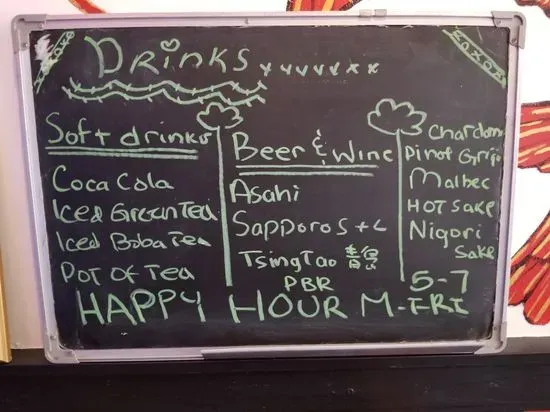 DRiNKS
Soft drinks
Coca Cola
Iced Green Tea
Iced Boba Tea
Pot of Tea
Beer & Wine
Asahi
Sapporo S + L
TsingTao 青
PBR
Chardonn
Pinot Grijo
Malbec
HOT SAKE
Nigori
Sake
5-7
HAPPY HOUR M-FRI